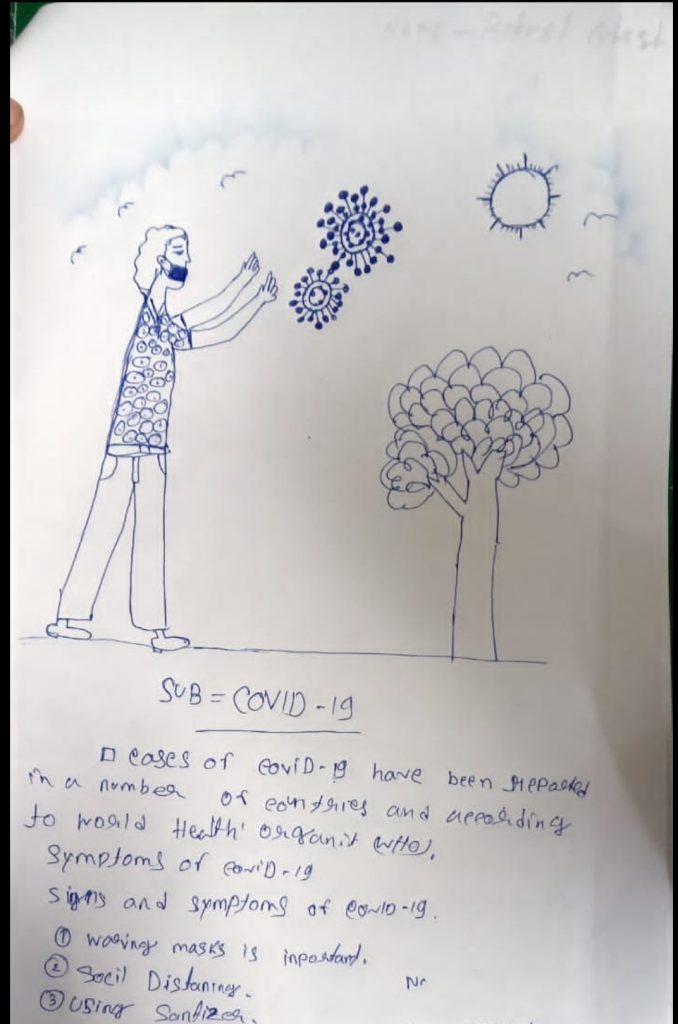 SUB = COVID-19
cases of coviD-19 have been reported
in a number of countries and according
to world Health organit (WHO).
Symptoms of coviD-19
Signs and symptoms of covID-19.
① waring masks is inportant.
② Socil Distaning.
③ using Sandizer.